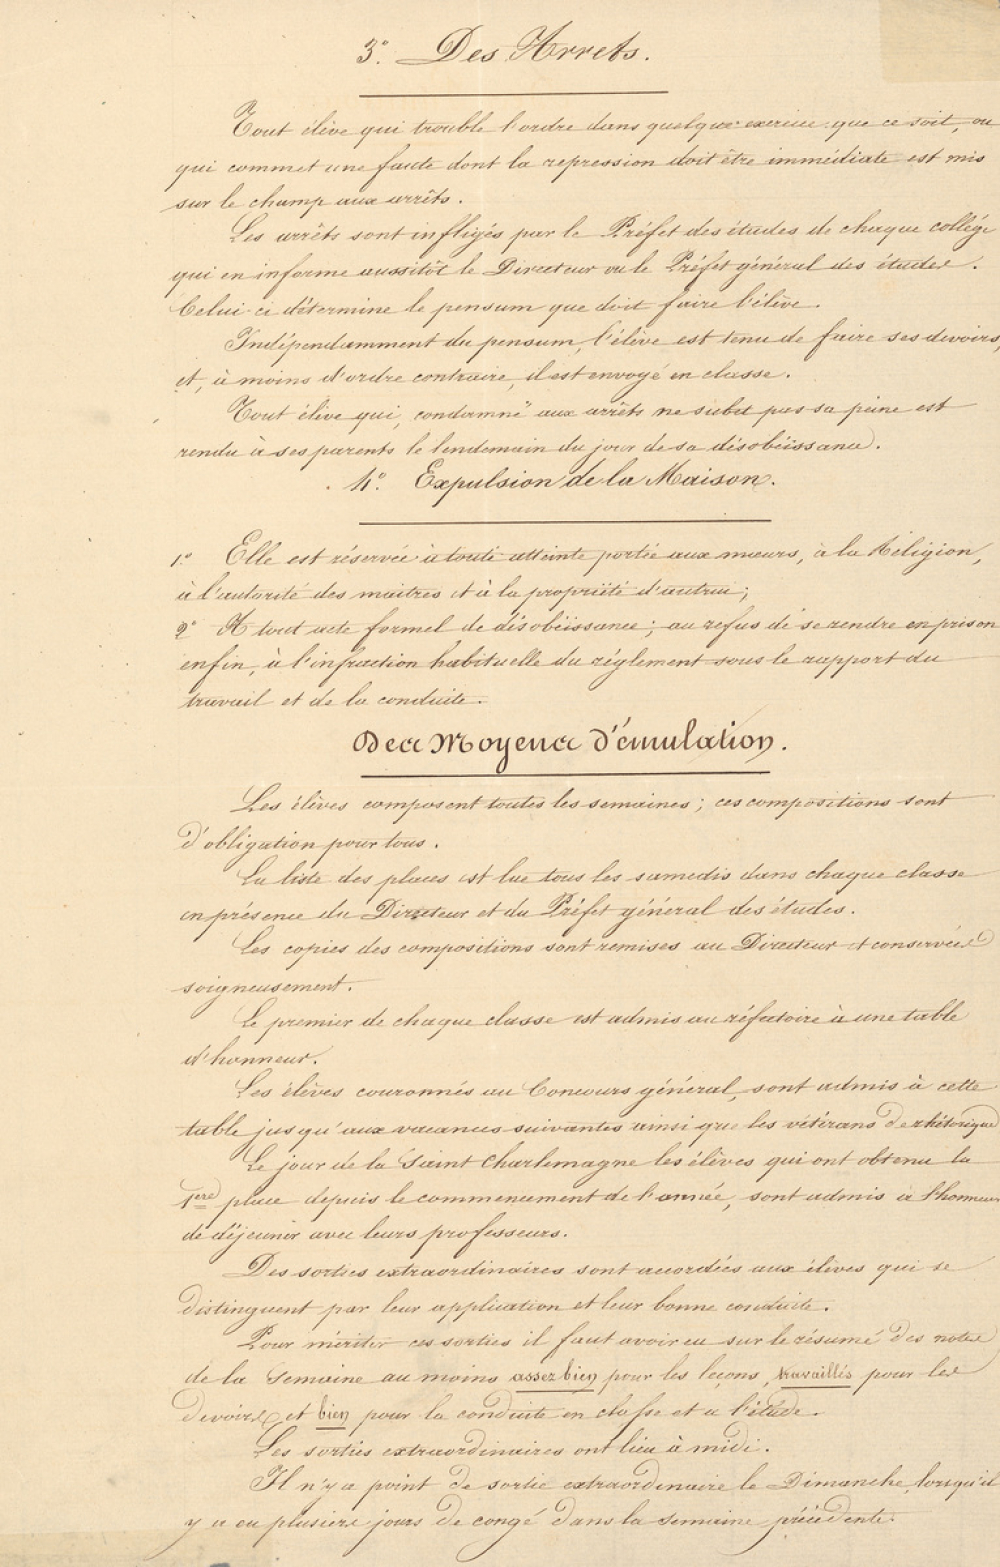 3° Des Arrets.
Tout élève qui trouble l'ordre dans quelque exercice que ce soit, ou
qui commet une faute dont la repression doit être immédiate est mis
sur le champ aux arrêts.
Les arrêts sont infligés par le Préfet des études de chaque collége
qui en informe aussitôt le Directeur ou le Préfet général des études.
Celui-ci détermine le pensum que doit faire l'élève.
Indépendamment du pensum, l'élève est tenu de faire ses devoirs,
et, à moins d'ordre contraire, il est envoyé en classe.
Tout élève qui, condamné aux arrêts ne subit pas sa peine est
rendu à ses parents le lendemain du jour de sa désobéissance.
4° Expulsion de la Maison.
1° Elle est réservée à toute atteinte portée aux mœurs, à la Réligion,
à l'autorité des maîtres et à la propriété d'autrui;
2° A tout acte formel de désobéissance; au refus de se rendre en prison
enfin, à l'infraction habituelle du réglement sous le rapport du
travail et de la conduite.
Des Moyens d'émulation.
Les élèves composent toutes les semaines; ces compositions sont
d'obligation pour tous.
La liste des places est lue tous les samedis dans chaque classe
en présence du Directeur et du Préfet général des études.
Les copies des compositions sont remises au Directeur et conservées
soigneusement.
Le premier de chaque classe est admis au réfectoire à une table
d'honneur.
Les élèves couronnés au Concours général, sont admis à cette
table jusqu'aux vacances suivantes ainsi que les vétérans de rhétorique
Le jour de la Saint Charlemagne les élèves qui ont obtenu la
1ere place depuis le commencement de l'année, sont admis à l'honneur
de déjeuner avec leurs professeurs.
Des sorties extraordinaires sont accordées aux élèves qui se
distinguent par leur application et leur bonne conduite.
Pour mériter ces sorties il faut avoir eu sur le résumé des notes
de la Semaine au moins assez bien pour les leçons, travaillés pour les
devoirs, et bien pour la conduite en classe et a l'étude.
Les sorties extraordinaires ont lieu à midi.
Il n'y a point de sortie extraordinaire le Dimanche, lorsqu'il
y a eu plusieurs jours de congé dans la semaine précédente.